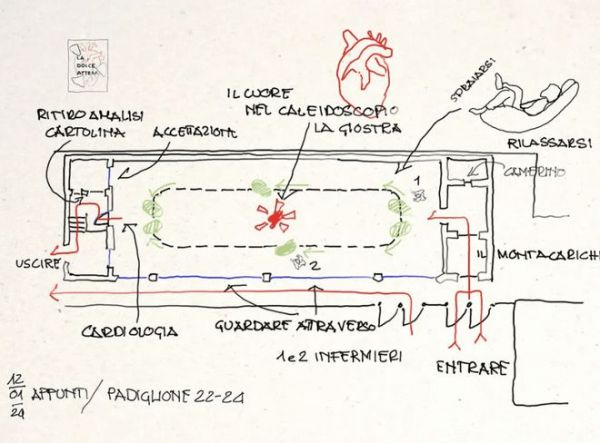 LA
DOLCE
ATTESA
IL CUORE
NEL CALEIDOSCOPIO
LA GIOSTRA
SDRAIARSI
RILASSARSI
RITIRO ANALISI
CARTOLINA
ACCETTAZIONE
CAMERINO
1
USCIRE
2
IL
MONTACARICHI
CARDIOLOGIA
GUARDARE ATTRAVERSO
1 e 2 INFERMIERI
ENTRARE
12
01
24
APPUNTI / PADIGLIONE 22-24